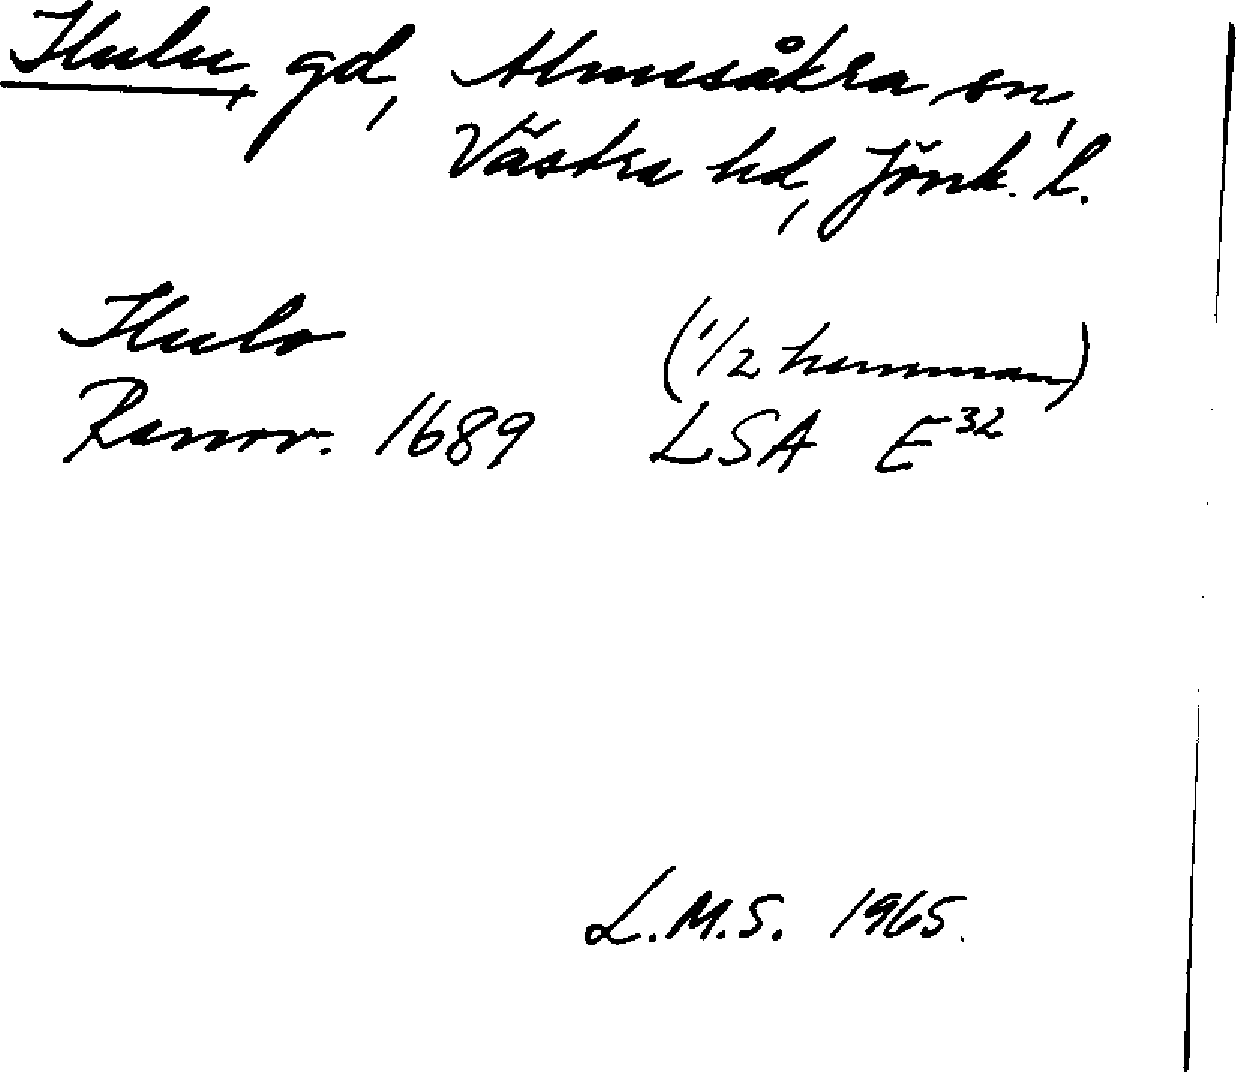 Hulu, gd, Almesåkra sn,
Västra hd, Jönk. l.
Hulo (1/2 hemman)
Renov. 1689 LSA E³²
L.M.S. 1965.